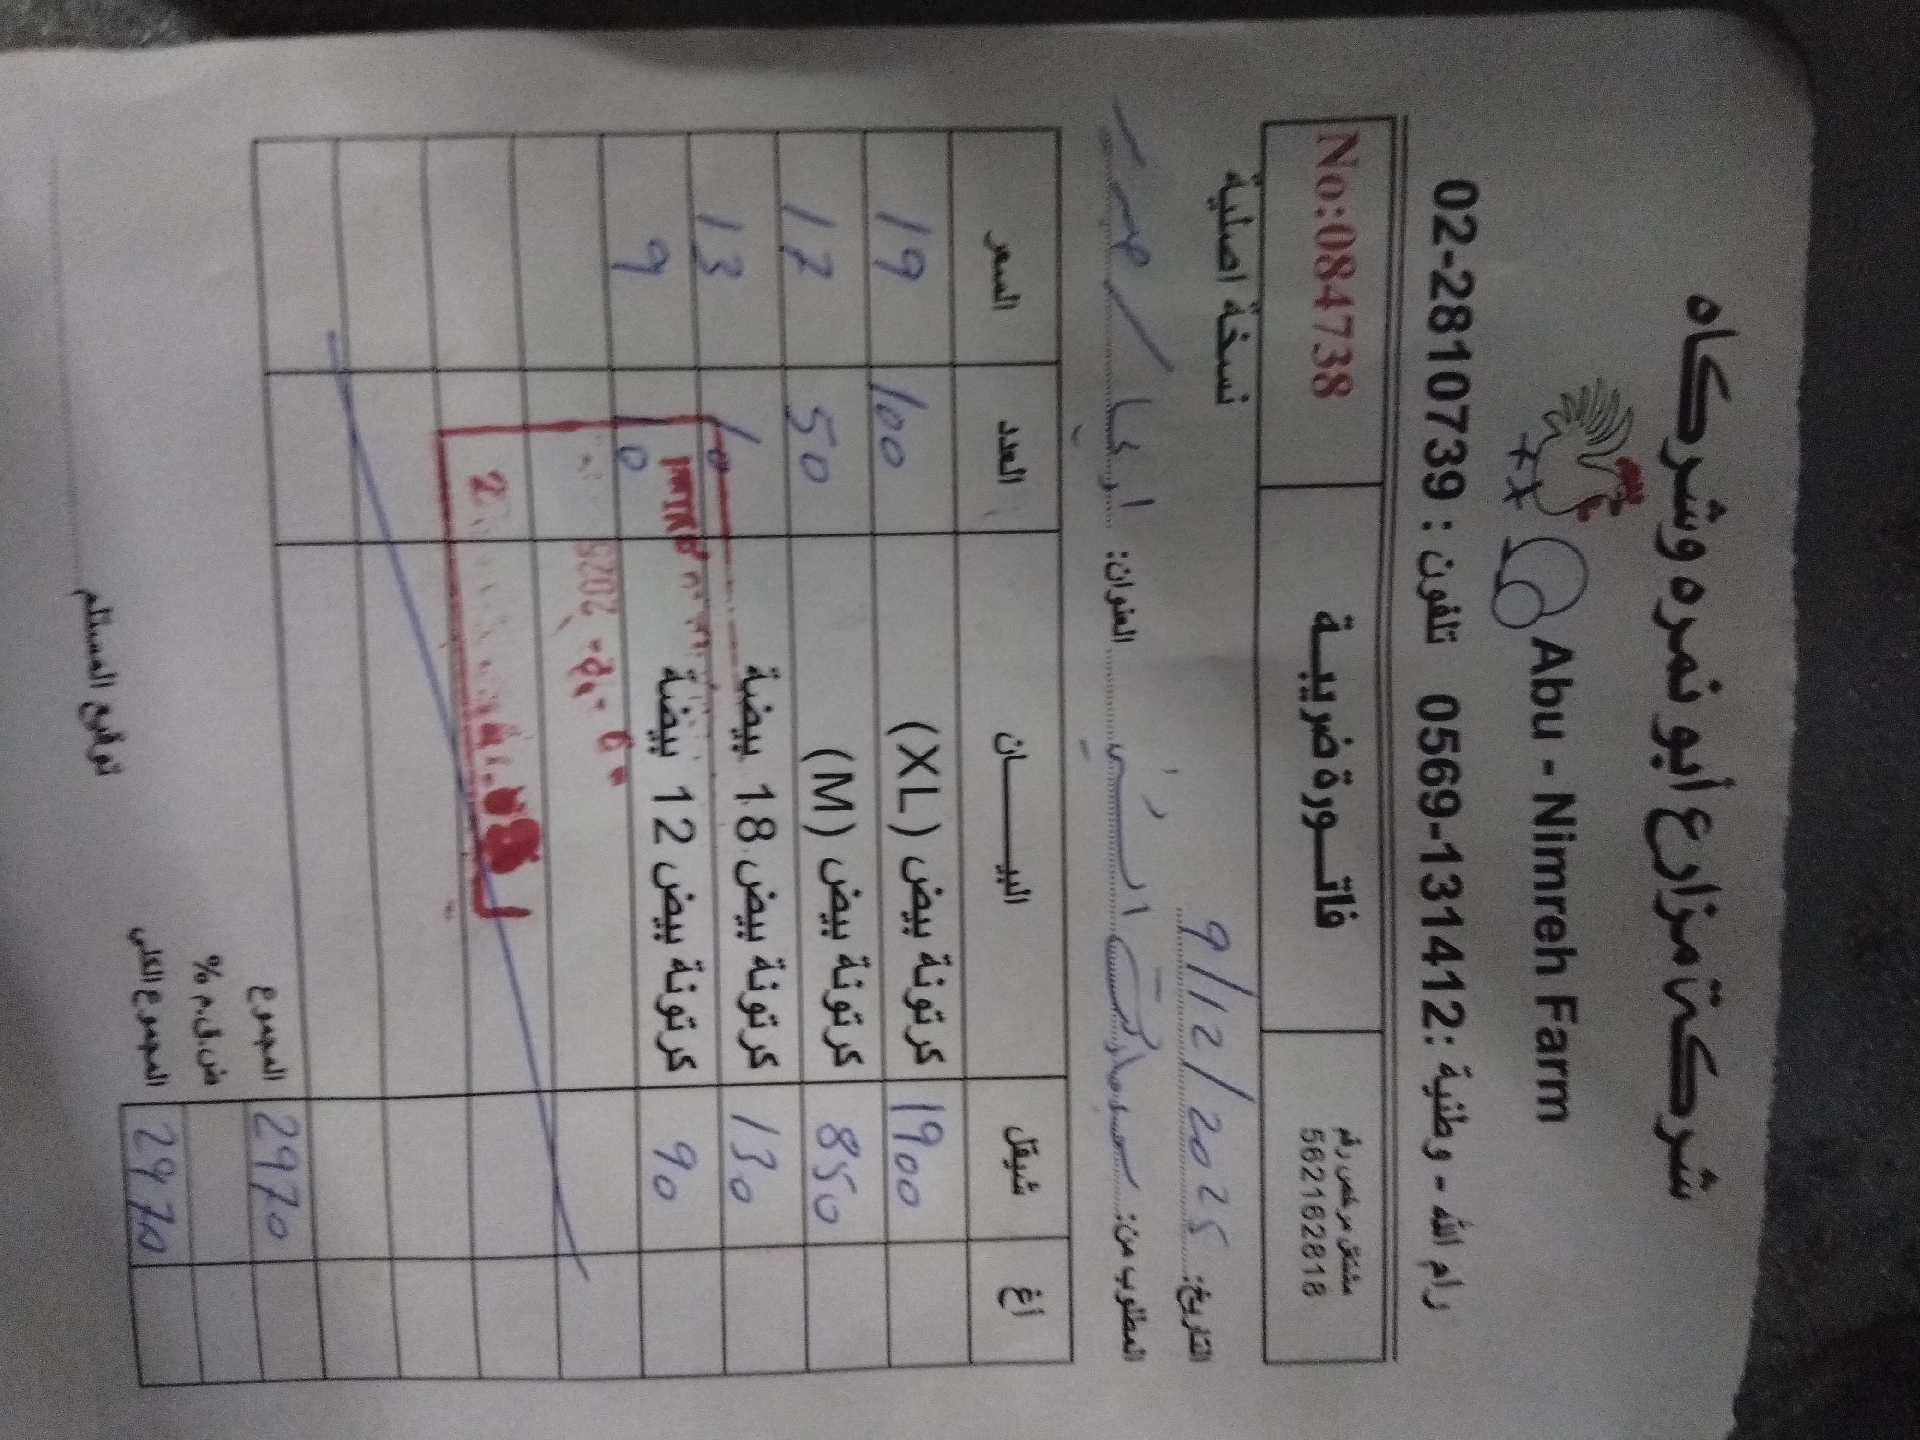 شركة مزارع أبو نمره وشركاه
Abu - Nimreh Farm
رام الله - وطنية : 0569-131412 تلفون : 02-2810739
مشتغل مرخص رقم
562162818
فاتورة ضريبة
No:084738
نسخة اصلية
التاريخ: 9/12/2025
المطلوب من: سوبرماركت العنوان: اريحا /
السعر العدد البيان شيقل اغ
19 100 كرتونة بيض (XL) 1900
17 50 كرتونة بيض (M) 850
13 10 كرتونة بيض 18 بيضة 130
9 10 كرتونة بيض 12 بيضة 90
2025
2
المجموع 2970
ض.ق.م %
المجموع الكلي 2970
توقيع المستلم